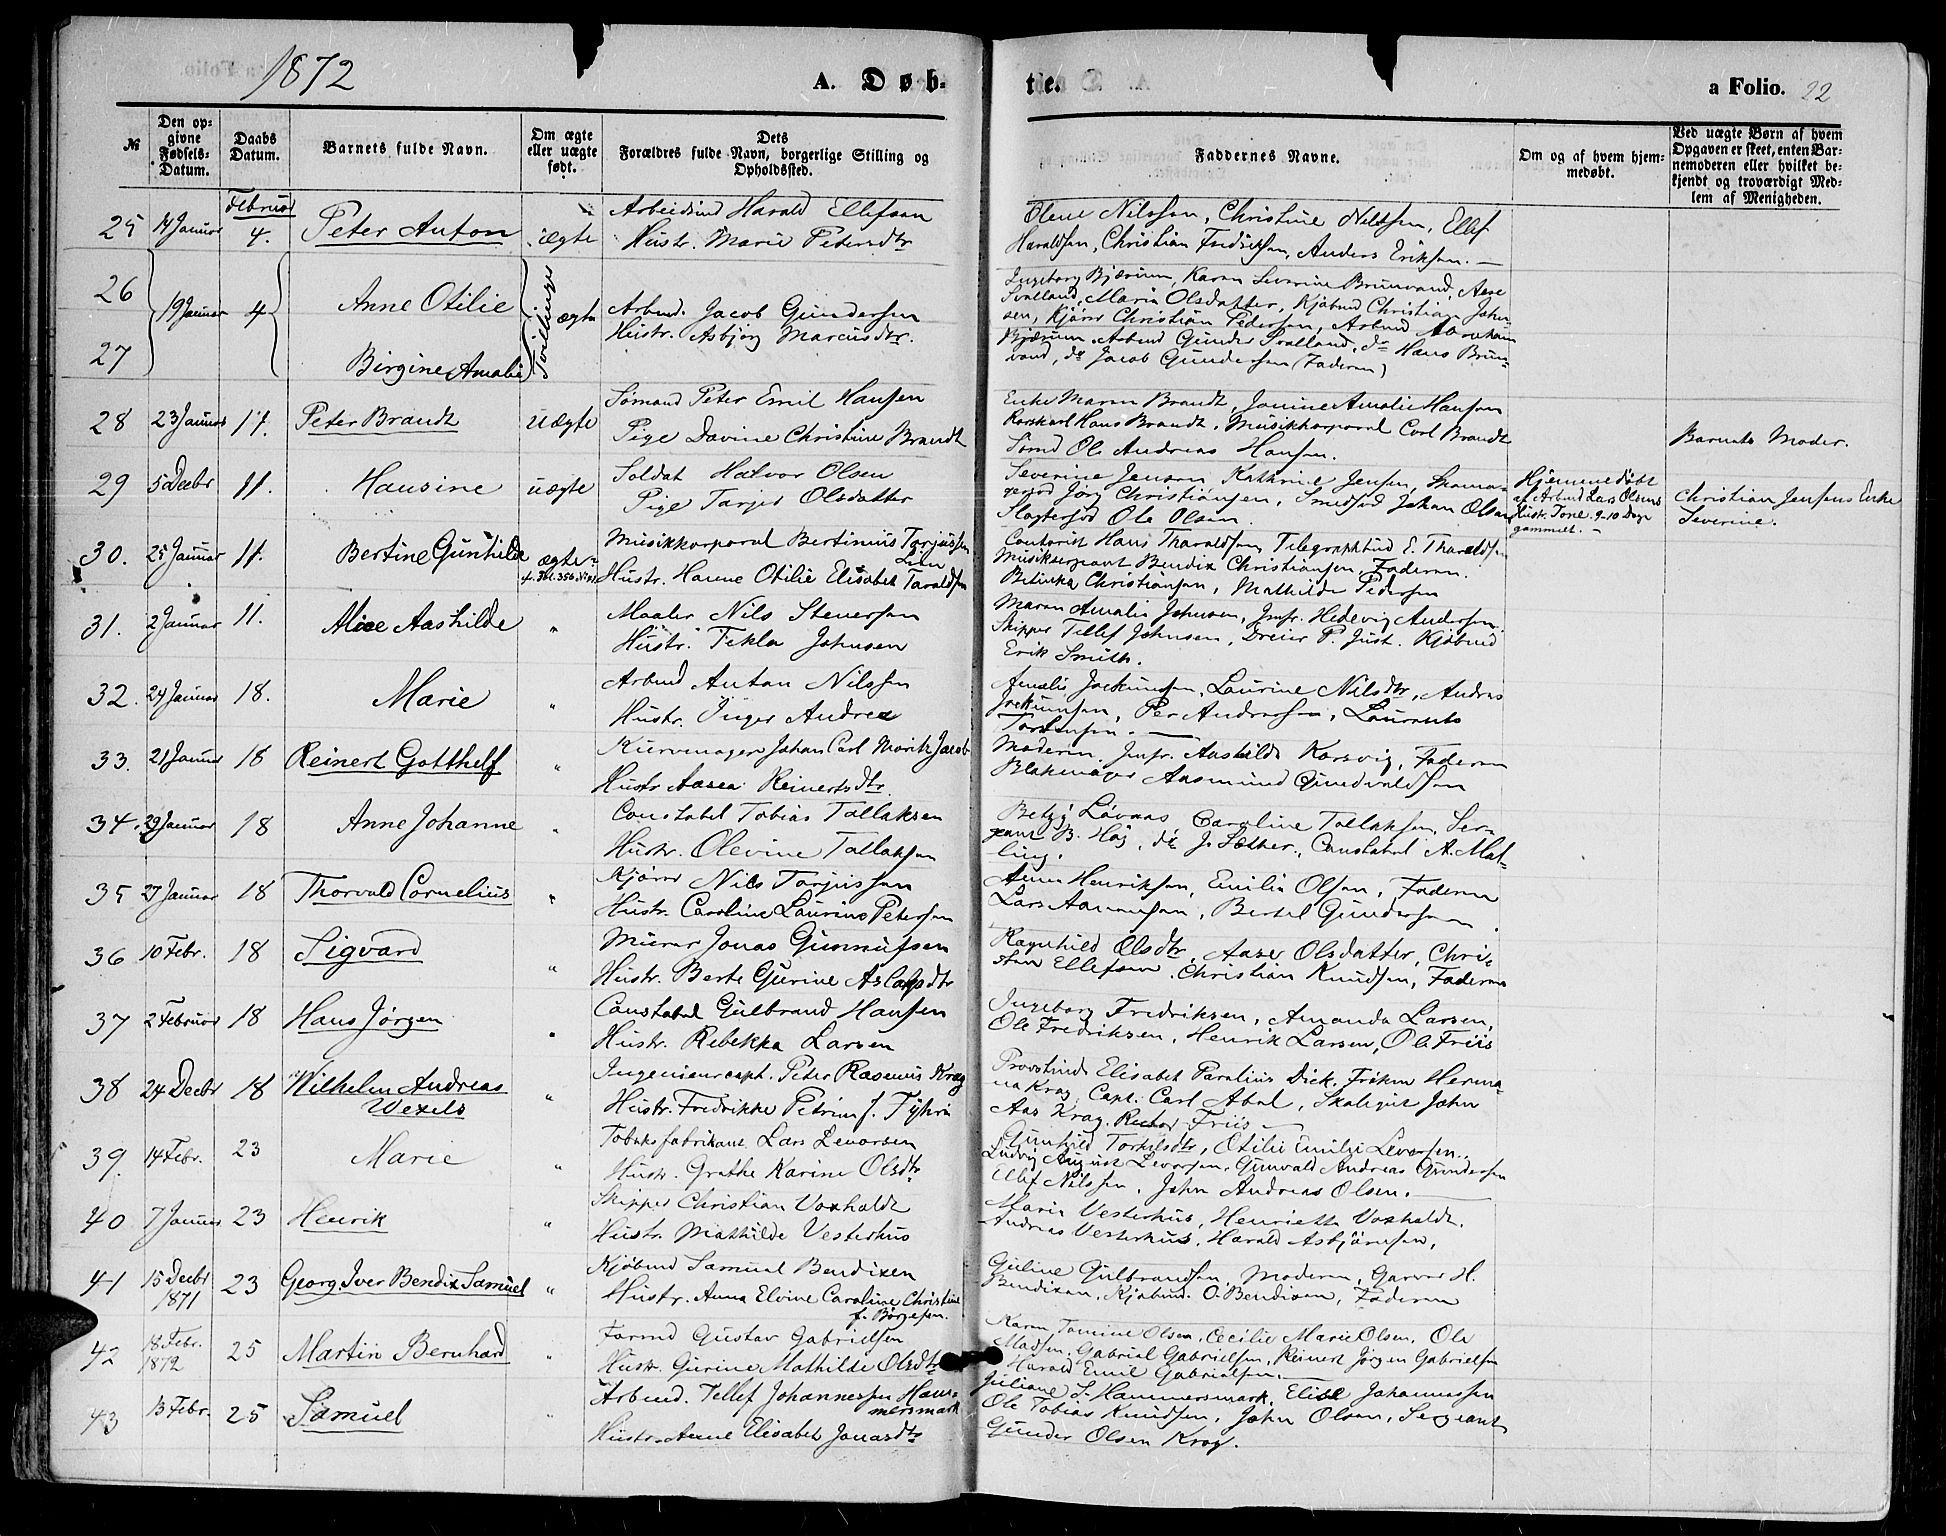 1872
A. Døb-
te.
a Folio. 22
№
Den op-
givne
Fødsels-
Datum.
Daabs
Datum.
Barnets fulde Navn.
Om ægte
eller uægte
født.
Dets
Forældres fulde Navn, borgerlige Stilling og
Opholdssted.
Faddernes Navne.
Om og af hvem hjem-
medøbt.
Ved uægte Børn af hvem
Opgaven er skeet, enten Bar-
nemoderen eller hvilket be-
kjendt og troværdigt Med-
lem af Menigheden.
25 14 Januar Februar 4. Peter Anton ægte
Arbeidsmd Harald Ellefsen
Hustr. Marie Petersdtr
Olene Nilssen, Christine Nilssen, Ellef
Haraldsen, Christian Fredriksen, Anders Eriksen. —
26 Anne Otilie
19 Januar 4 Tvillinger ægte
27 Birgine Amalie
Arbmd. Jacob Gundersen
Hustr. Asbjørg Marcusdtr.
Ingeborg Bjærum, Karen Severine Brunvand, Aase
Svalland, Maria Olsdatter, Kjøbmd Christian John-
sen, Kjører Christian Pedersen, Arbmd Abraham
Bjærum, Arbmd Gunder Svalland, do Hans Brun-
vand, do Jacob Gundersen (Faderen)
28 23 Januar 11. Peter Brandt uægte
Sømand Peter Emil Hansen
Pige Davine Christine Brandt
Enke Maren Brandt, Janine Amalie Hansen
Karl Hans Brandt, Musikkorporal Carl Brandt
Sømd Ole Andreas Hansen.
Barnets Moder.
29 5 Decbr 11. Hansine uægte
Soldat Halvor Olsen
Pige Tarjer Olsdatter
Severine Jensen Kathrine Jensen, Skoma-
gersd Jørg Christiansen, Smedsd Johan Olsen
Slagtersd Ole Olsen.
Hjemmedøbt
af Arbmd Lars Olsens
Hustr. Tone 9-10 Dage
gammel. —
Christian Jensens Enke
Severine.
30. 25 Januar 11. Bertine Gunhilde ægte
Musikkorporal Bertinius Tarjussen
Hustr. Hanne Otilie Elisabet Taraldsen
Contorist Hans Tharaldsen, Telegraphbud E. Tharaldsen
Musiksergeant Bendix Christiansen, Faderen.
Betinka Christiansen, Mathilde Pedersen
31. 2 Januar 11. Alice Aashilde "
Maaler Nils Stenersen
Hustr. Tekla Johnsen
Maren Amalie Johnsen, Jmfr. Hedevig Andersen.
Skipper Tellef Johnsen, Dreier P. Just. Kjøbmd
Erik Smith.
32. 24 Januar 18. Marie "
Arbmd Anton Nilssen
Hustr. Inger Andrea
Amalie Jockumsen, Laurine Nilsdtr, Andreas
Jockumsen, Per Andersen, Laurents
Torstensen. —
33. 21 Januar 18 Reinert Gotthelf "
Kurvmager Johan Carl Moritz Jacob
Hustr Aasea Reinertsdtr
Moderen, Jmfr. Aashilde Korsvig, Faderen
Blokmager Aasmund Gundvaldsen
34. 29 Januar 18 Anne Johanne "
Constabel Tobias Tallaksen
Hustr. Olevine Tallaksen
Betzy Løvaas Caroline Tallaksen, Ser-
geant B. Høg, do J. Sæther, Constabel A. Mal-
ling.
35 27 Januar 18 Thorvald Cornelius "
Kjører Nils Tarjussen
Hustr. Caroline Laurine Petersen
Anne Henriksen, Emilie Olsen, Faderen
Lars Aanensen, Bertel Gundersen
36 10 Febr. 18 Sigvard "
Murer Jonas Gunnufsen
Hustr. Berte Gurine Aslaksdtr
Ragnhild Olsdtr, Aase Olsdatter, Chri-
stian Ellefsen, Christian Knudsen, Faderen
37 2 Februar 18 Hans Jørgen "
Constabel Gulbrand Hansen
Hustr. Rebekka Larsen
Ingeborg Fredriksen, Amanda Larsen,
Ole Fredriksen, Henrik Larsen, Ole Friis
38 24 Decbr 18 Wilhelm Andreas
Wexels "
Ingenieurcapt. Peter Rasmus Krag
Hustr. Fredrikke Petrine f.
Provstinde Elisabet Paraline Dick. Frøken Herma-
na Krag, Capt. Carl Abel, John
Aas Krag. Rector Friis —
39. 14 Febr. 23 Marie "
Tobaksfabrikant Lars Levorsen
Hustr. Grethe Karine Olsdtr
Gunhild Torkelsdtr, Otilie Emilie Levorsen.
Ludvig August Levorsen, Gunvald Andreas Gundersen
Ellef Nilssen, John Andreas Olsen. —
40 7 Januar 23 Henrik "
Skipper Christian Voxholdt
Hustr. Mathilde Vesterhus
Maria Vesterhus, Henriette Voxholdt.
Andreas Vesterhus, Harald Asbjørnsen,
41 15 Decbr
1871 23 Georg Iver Bendix Samuel "
Kjøbmd Samuel Bendixen
Hustr. Anna Elvine Caroline Christine
f. Børgesen.
Guline Gulbrandsen, Moderen, Garver H.
Bendixen, Kjøbmd. O. Bendixen, Faderen
42 18 Febr.
1872 25 Martin Bernhard "
Formd Gustav Gabrielsen
Hustr. Gurine Mathilde Olsdtr
Karen Tomine Olsen, Cecilie Marie Olsen, Ole
Madsen, Gabriel Gabrielsen, Reinert Jørgen Gabrielsen
Harald Emil Gabrielsen. —
43 13 Febr. 25 Samuel "
Arbmd. Tellef Johannessen Ham-
mersmark
Hustr. Anne Elisabet Jonasdtr
Juliane S. Hammersmark, Elise Johannessen
Ole Tobias Knudsen, John Olsen, Sergeant
Gunder Olsen Krag.